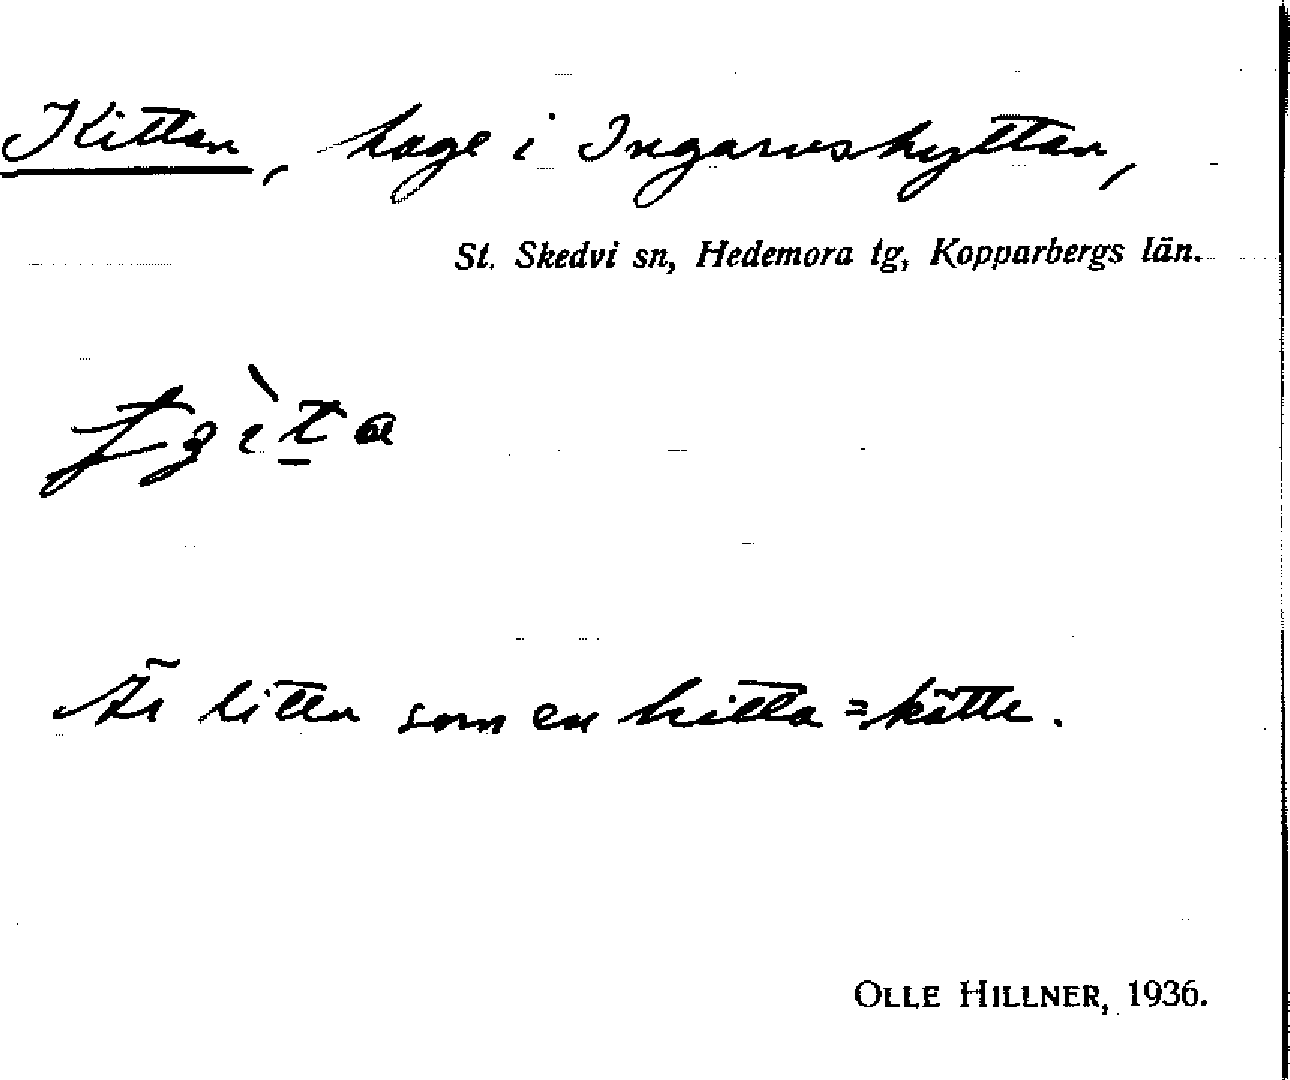 Kittan, hage i Ingarvshyttan,
St. Skedvi sn, Hedemora tg, Kopparbergs län.
Är liten som en kitta = kätte.
OLLE HILLNER, 1936.